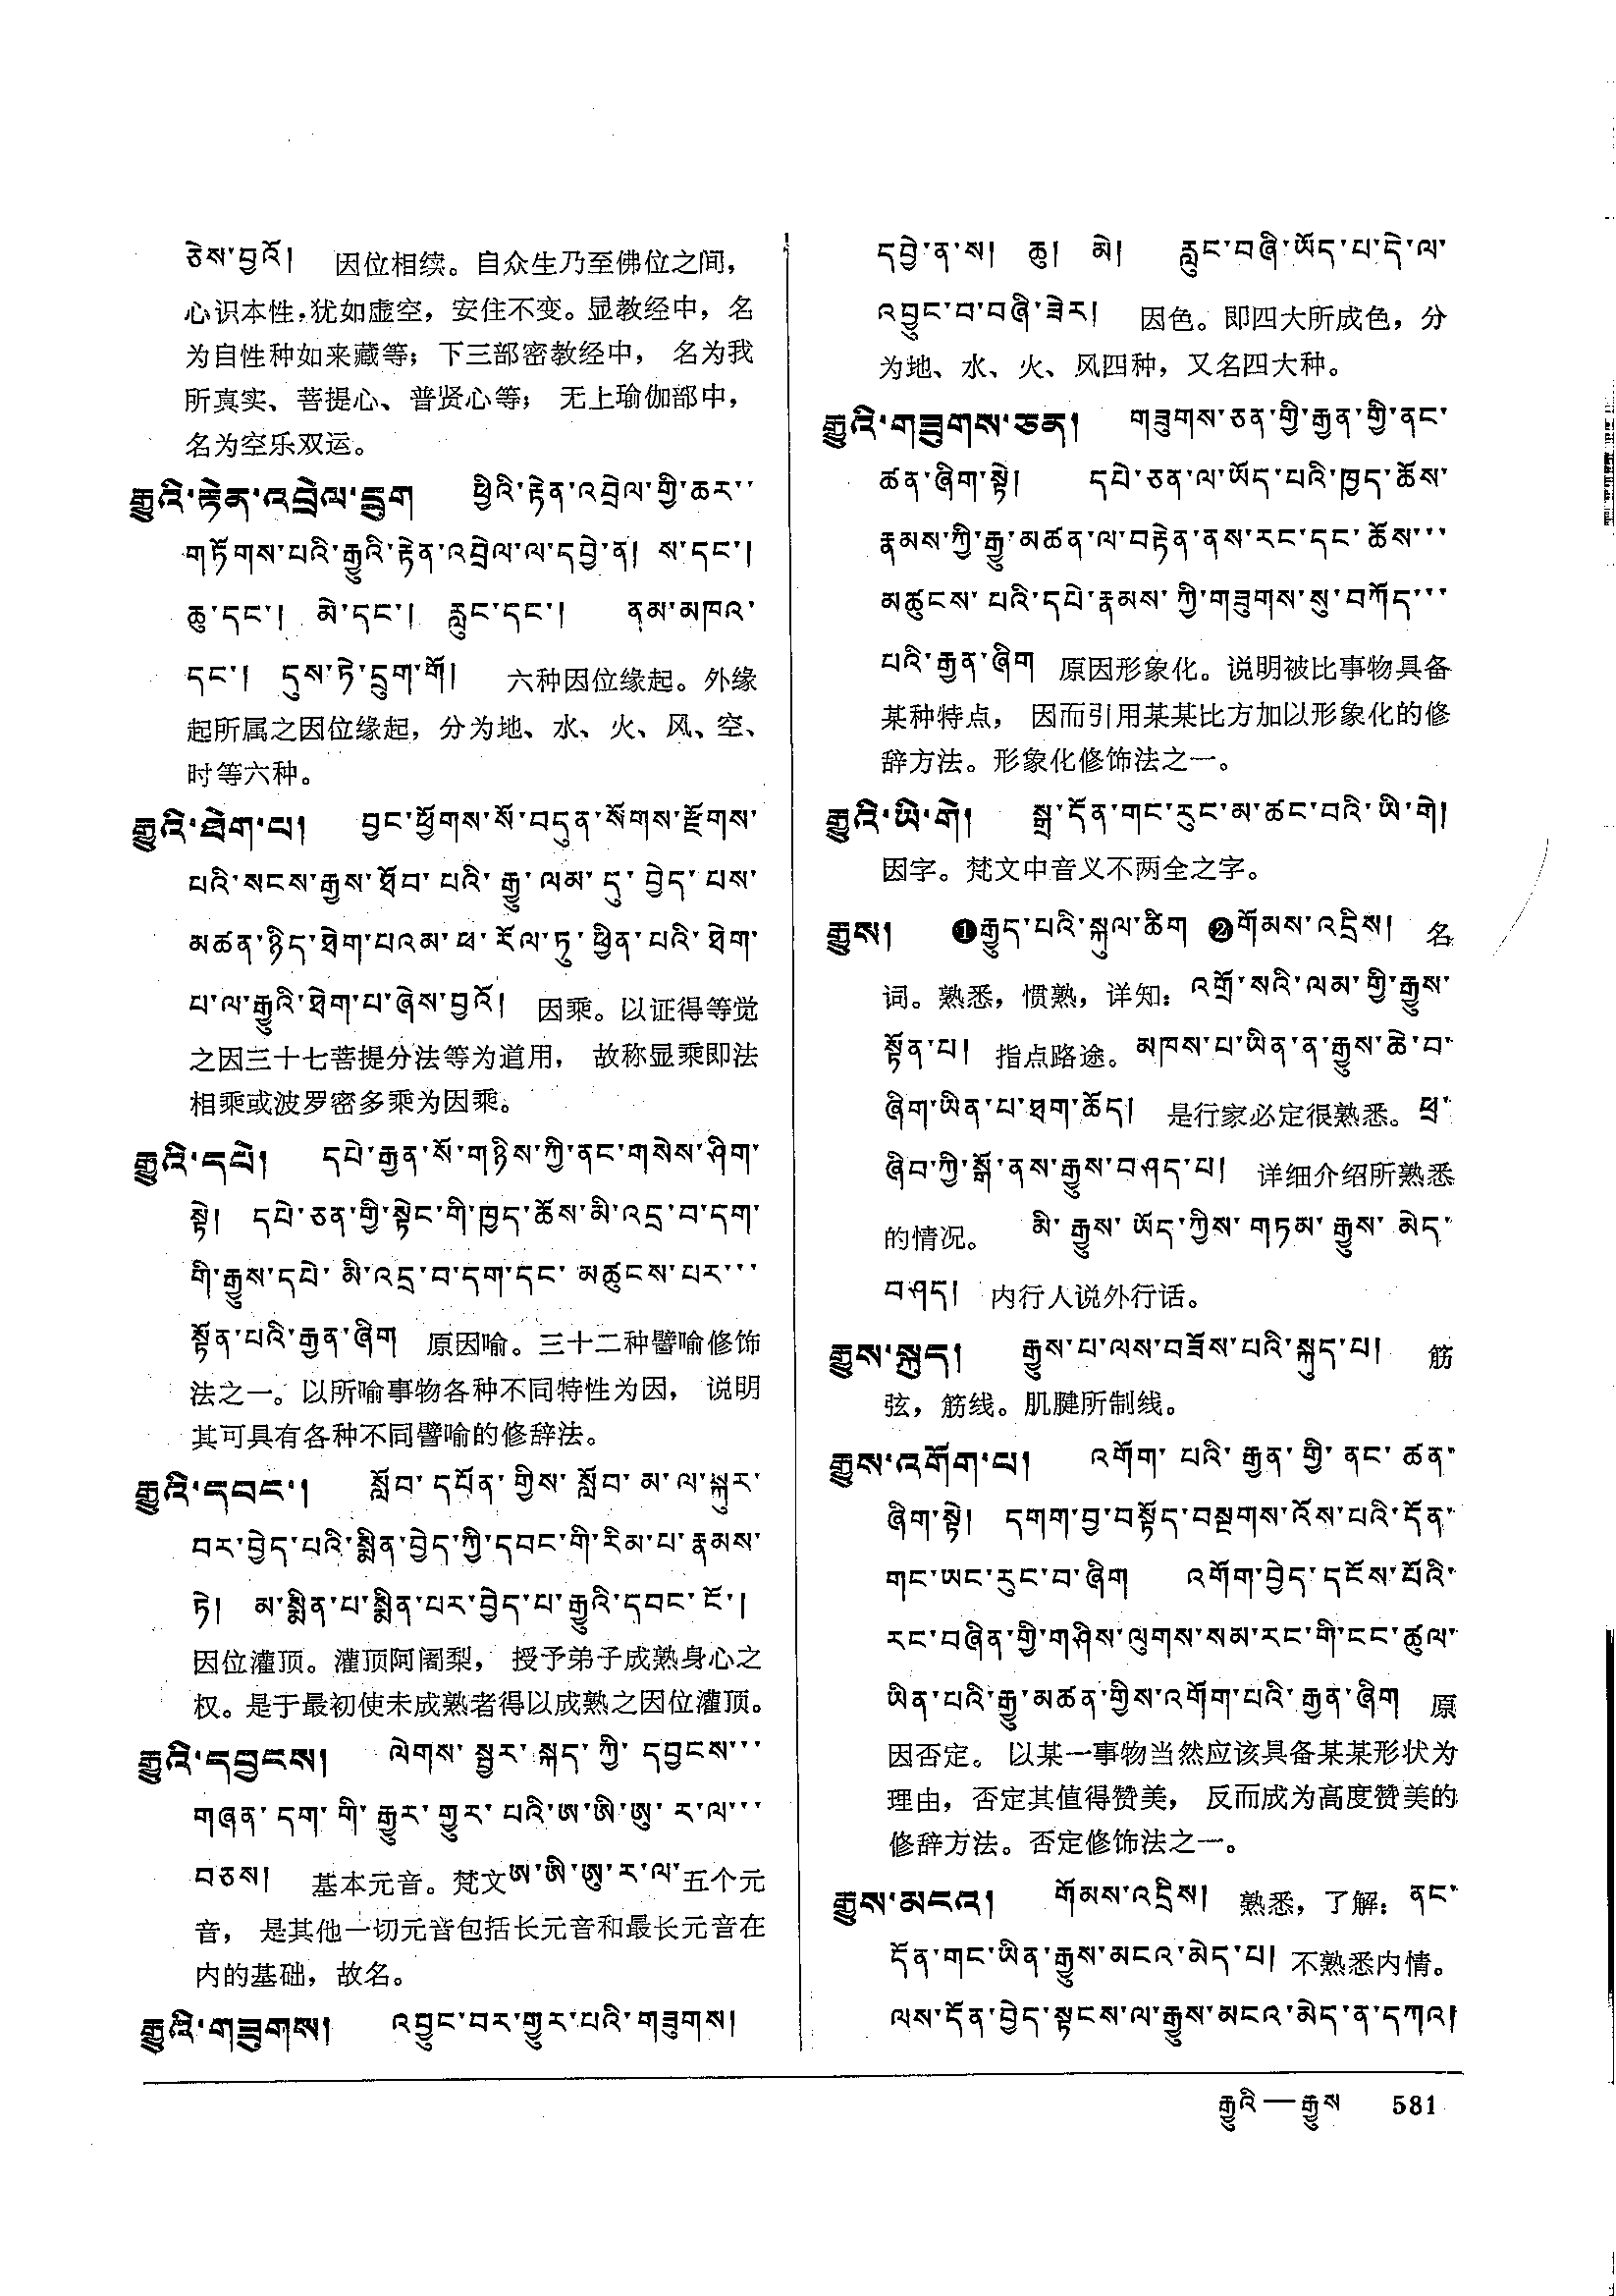 ཅེས་བྱའོ། 因位相续。自众生乃至佛位之间，
心识本性,犹如虚空，安住不变。显教经中，名
为自性种如来藏等；下三部密教经中，名为我
所真实、菩提心、普贤心等；无上瑜伽部中，
名为空乐双运。
རྒྱུའི་རྟེན་འབྲེལ་དྲུག ཕྱིའི་རྟེན་འབྲེལ་གྱི་ཆར་་
གཏོགས་པའི་རྒྱུའི་རྟེན་འབྲེལ་ལ་དབྱེ་ན། ས་དང་།
ཆུ་དང་། མེ་དང་། རླུང་དང་། ནམ་མཁའ་
དང་། དུས་ཏེ་དྲུག་གོ། 六种因位缘起。外缘
起所属之因位缘起，分为地、水、火、风、空、
时等六种。
རྒྱུའི་ཐེག་པ། བྱང་ཕྱོགས་སོ་བདུན་སོགས་རྫོགས་
པའི་སངས་རྒྱས་ཐོབ་པའི་རྒྱུ་ལམ་དུ་བྱེད་པས་
མཚན་ཉིད་ཐེག་པའམ་ཕ་རོལ་ཏུ་ཕྱིན་པའི་ཐེག་
པ་ལ་རྒྱུའི་ཐེག་པ་ཞེས་བྱའོ། 因乘。以证得等觉
之因三十七菩提分法等为道用，故称显乘即法
相乘或波罗密多乘为因乘。
རྒྱུའི་དཔེ། དཔེ་རྒྱན་སོ་གཉིས་ཀྱི་ནང་གསེས་ཤིག་
སྟེ། དཔེ་ཅན་གྱི་སྟེང་གི་ཁྱད་ཆོས་མི་འདྲ་བ་དག་
གི་རྒྱུས་དཔེ་མི་འདྲ་བ་དག་དང་མཚུངས་པར་་་
སྟོན་པའི་རྒྱན་ཞིག 原因喻。三十二种譬喻修饰
法之一。以所喻事物各种不同特性为因，说明
其可具有各种不同譬喻的修辞法。
རྒྱུའི་དབང་། སློབ་དཔོན་གྱིས་སློབ་མ་ལ་སྐུར་
བར་བྱེད་པའི་སྨིན་བྱེད་ཀྱི་དབང་གི་རིམ་པ་རྣམས་
ཏེ། མ་སྨིན་པ་སྨིན་པར་བྱེད་པ་རྒྱུའི་དབང་ངོ་།
因位灌顶。灌顶阿阇梨，授予弟子成熟身心之
权。是于最初使未成熟者得以成熟之因位灌顶。
རྒྱུའི་དབྱངས། ལེགས་སྦྱར་སྐད་ཀྱི་དབྱངས་་་
གཞན་དག་གི་རྒྱུར་གྱུར་པའི་ཨ་ཨི་ཨུ་ར་ལ་་་
བཅས། 基本元音。梵文ཨ་ཨི་ཨུ་ར་ལ་五个元
音，是其他一切元音包括长元音和最长元音在
内的基础，故名。
རྒྱུའི་གཟུགས། འབྱུང་བར་གྱུར་པའི་གཟུགས།
དབྱེ་ན་ས། ཆུ། མེ། རླུང་བཞི་ཡོད་པ་དེ་ལ་
འབྱུང་བ་བཞི་ཟེར། 因色。即四大所成色，分
为地、水、火、风四种，又名四大种。
རྒྱུའི་གཟུགས་ཅན། གཟུགས་ཅན་གྱི་རྒྱན་གྱི་ནང་
ཚན་ཞིག་སྟེ། དཔེ་ཅན་ལ་ཡོད་པའི་ཁྱད་ཆོས་
རྣམས་ཀྱི་རྒྱུ་མཚན་ལ་བརྟེན་ནས་རང་དང་ཆོས་་་
མཚུངས་པའི་དཔེ་རྣམས་ཀྱི་གཟུགས་སུ་བཀོད་་་
པའི་རྒྱན་ཞིག 原因形象化。说明被比事物具备
某种特点，因而引用某某比方加以形象化的修
辞方法。形象化修饰法之一。
རྒྱུའི་ཡི་གེ། སྒྲ་དོན་གང་རུང་མ་ཚང་བའི་ཡི་གེ།
因字。梵文中音义不两全之字。
རྒྱུས། ❶རྒྱུད་པའི་སྐུལ་ཚིག ❷གོམས་འདྲིས། 名
词。熟悉，惯熟，详知：འགྲོ་སའི་ལམ་གྱི་རྒྱུས་
སྟོན་པ། 指点路途。མཁས་པ་ཡིན་ན་རྒྱུས་ཆེ་བ་
ཞིག་ཡིན་པ་ཐག་ཆོད། 是行家必定很熟悉。ཕྲ་
ཞིབ་ཀྱི་སྒོ་ནས་རྒྱུས་བཤད་པ། 详细介绍所熟悉
的情况。 མི་རྒྱུས་ཡོད་ཀྱིས་གཏམ་རྒྱུས་མེད་
བཤད། 内行人说外行话。
རྒྱུས་སྐུད། རྒྱུས་པ་ལས་བཟོས་པའི་སྐུད་པ། 筋
弦，筋线。肌腱所制线。
རྒྱུས་འགོག་པ། འགོག་པའི་རྒྱན་གྱི་ནང་ཚན་
ཞིག་སྟེ། དགག་བྱ་བསྟོད་བསྔགས་འོས་པའི་དོན་
གང་ཡང་རུང་བ་ཞིག འགོག་བྱེད་དངོས་པོའི་
རང་བཞིན་གྱི་གཤིས་ལུགས་སམ་རང་གི་ངང་ཚུལ་
ཡིན་པའི་རྒྱུ་མཚན་གྱིས་འགོག་པའི་རྒྱན་ཞིག 原
因否定。以某一事物当然应该具备某某形状为
理由，否定其值得赞美，反而成为高度赞美的
修辞方法。否定修饰法之一。
རྒྱུས་མངའ། གོམས་འདྲིས། 熟悉，了解：ནང་
དོན་གང་ཡིན་རྒྱུས་མངའ་མེད་པ། 不熟悉内情。
ལས་དོན་བྱེད་སྟངས་ལ་རྒྱུས་མངའ་མེད་ན་དཀའ།
རྒྱུའི—རྒྱུས 581